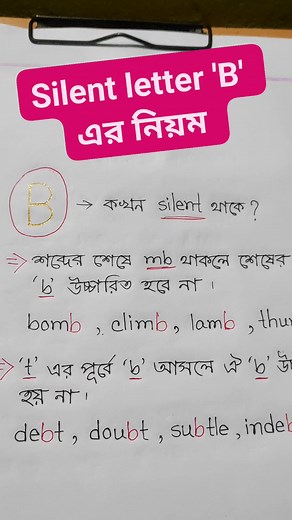 Silent letter 'B'
এর নিয়ম
B → কখন silent থাকে ?
⇒ শব্দের শেষে mb থাকলে শেষের
'b' উচ্চারিত হবে না ।
bomb , climb, lamb,
⇒ 't' এর পূর্বে 'b' আসলে ঐ 'b'
হয় না ।
debt, doubt, subtle,